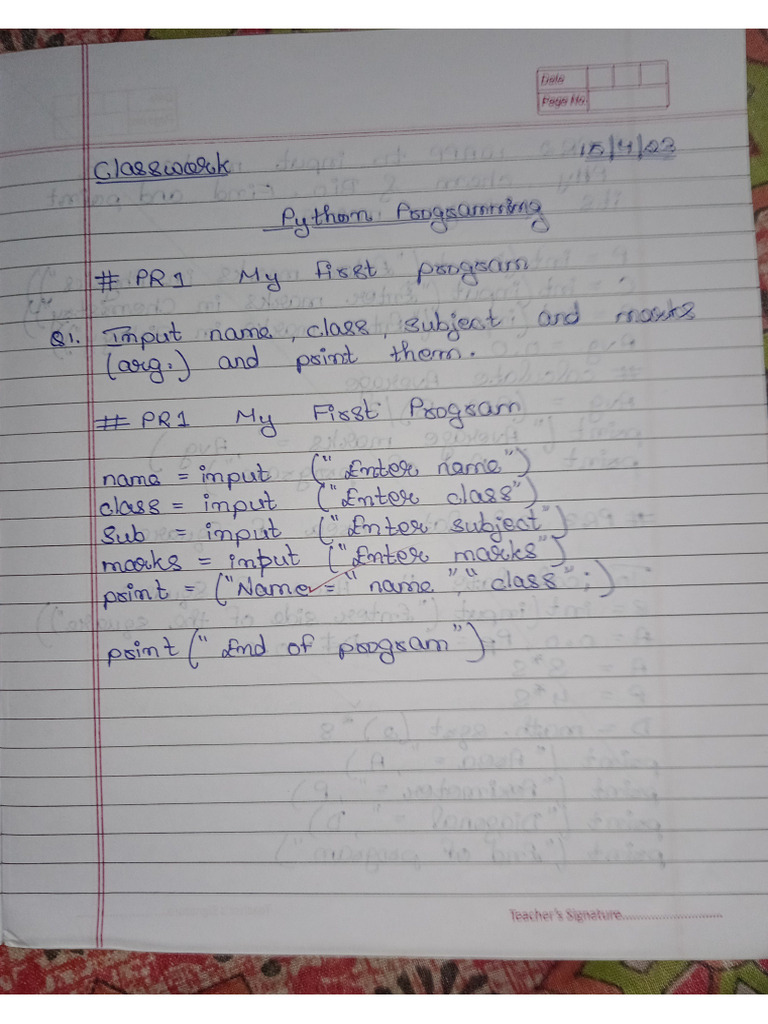 Date
Page No
Classwork 15/4/23
Python Programming
# PR1 My first program
Q1. Input name, class, subject and marks
(arg.) and print them.
# PR1 My First Program
name = input ("Enter name")
class = input ("Enter class")
sub = input ("Enter subject")
marks = input ("Enter marks")
print = ("Name = " name "," class" ;)
print (" End of program");
Teacher's Signature